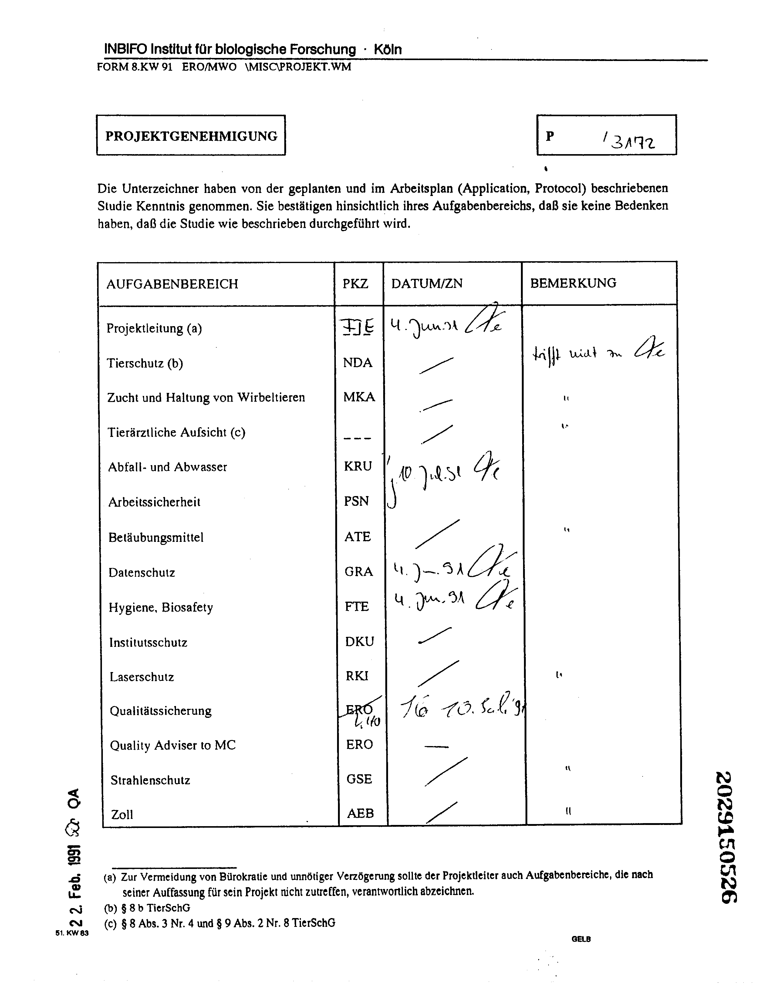 INBIFO Institut für biologische Forschung · Köln
FORM 8.KW 91 ERO/MWO \MISC\PROJEKT.WM
PROJEKTGENEHMIGUNG
P 3172
Die Unterzeichner haben von der geplanten und im Arbeitsplan (Application, Protocol) beschriebenen
Studie Kenntnis genommen. Sie bestätigen hinsichtlich ihres Aufgabenbereichs, daß sie keine Bedenken
haben, daß die Studie wie beschrieben durchgeführt wird.
AUFGABENBEREICH PKZ DATUM/ZN BEMERKUNG
Projektleitung (a) 4. Jun. 91
Tierschutz (b) NDA trifft nicht zu
Zucht und Haltung von Wirbeltieren MKA "
Tierärztliche Aufsicht (c) --- "
Abfall- und Abwasser KRU 10 Jul. 91
Arbeitssicherheit PSN
Betäubungsmittel ATE "
Datenschutz GRA 4. 91
Hygiene, Biosafety FTE 4. Jun. 91
Institutsschutz DKU
Laserschutz RKI "
Qualitätssicherung ERO
Quality Adviser to MC ERO —
Strahlenschutz GSE "
Zoll AEB "
(a) Zur Vermeidung von Bürokratie und unnötiger Verzögerung sollte der Projektleiter auch Aufgabenbereiche, die nach
seiner Auffassung für sein Projekt nicht zutreffen, verantwortlich abzeichnen.
(b) § 8 b TierSchG
(c) § 8 Abs. 3 Nr. 4 und § 9 Abs. 2 Nr. 8 TierSchG
22. Feb. 1991 QA
51. KW 83
GELB
2029150526